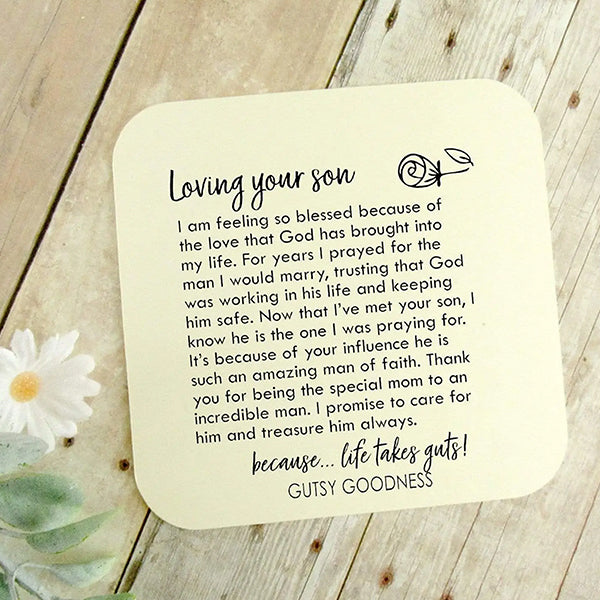 Loving your son
I am feeling so blessed because of
the love that God has brought into
my life. For years I prayed for the
man I would marry, trusting that God
was working in his life and keeping
him safe. Now that I've met your son, I
know he is the one I was praying for.
It's because of your influence he is
such an amazing man of faith. Thank
you for being the special mom to an
incredible man. I promise to care for
him and treasure him always.
because... life takes guts!
GUTSY GOODNESS